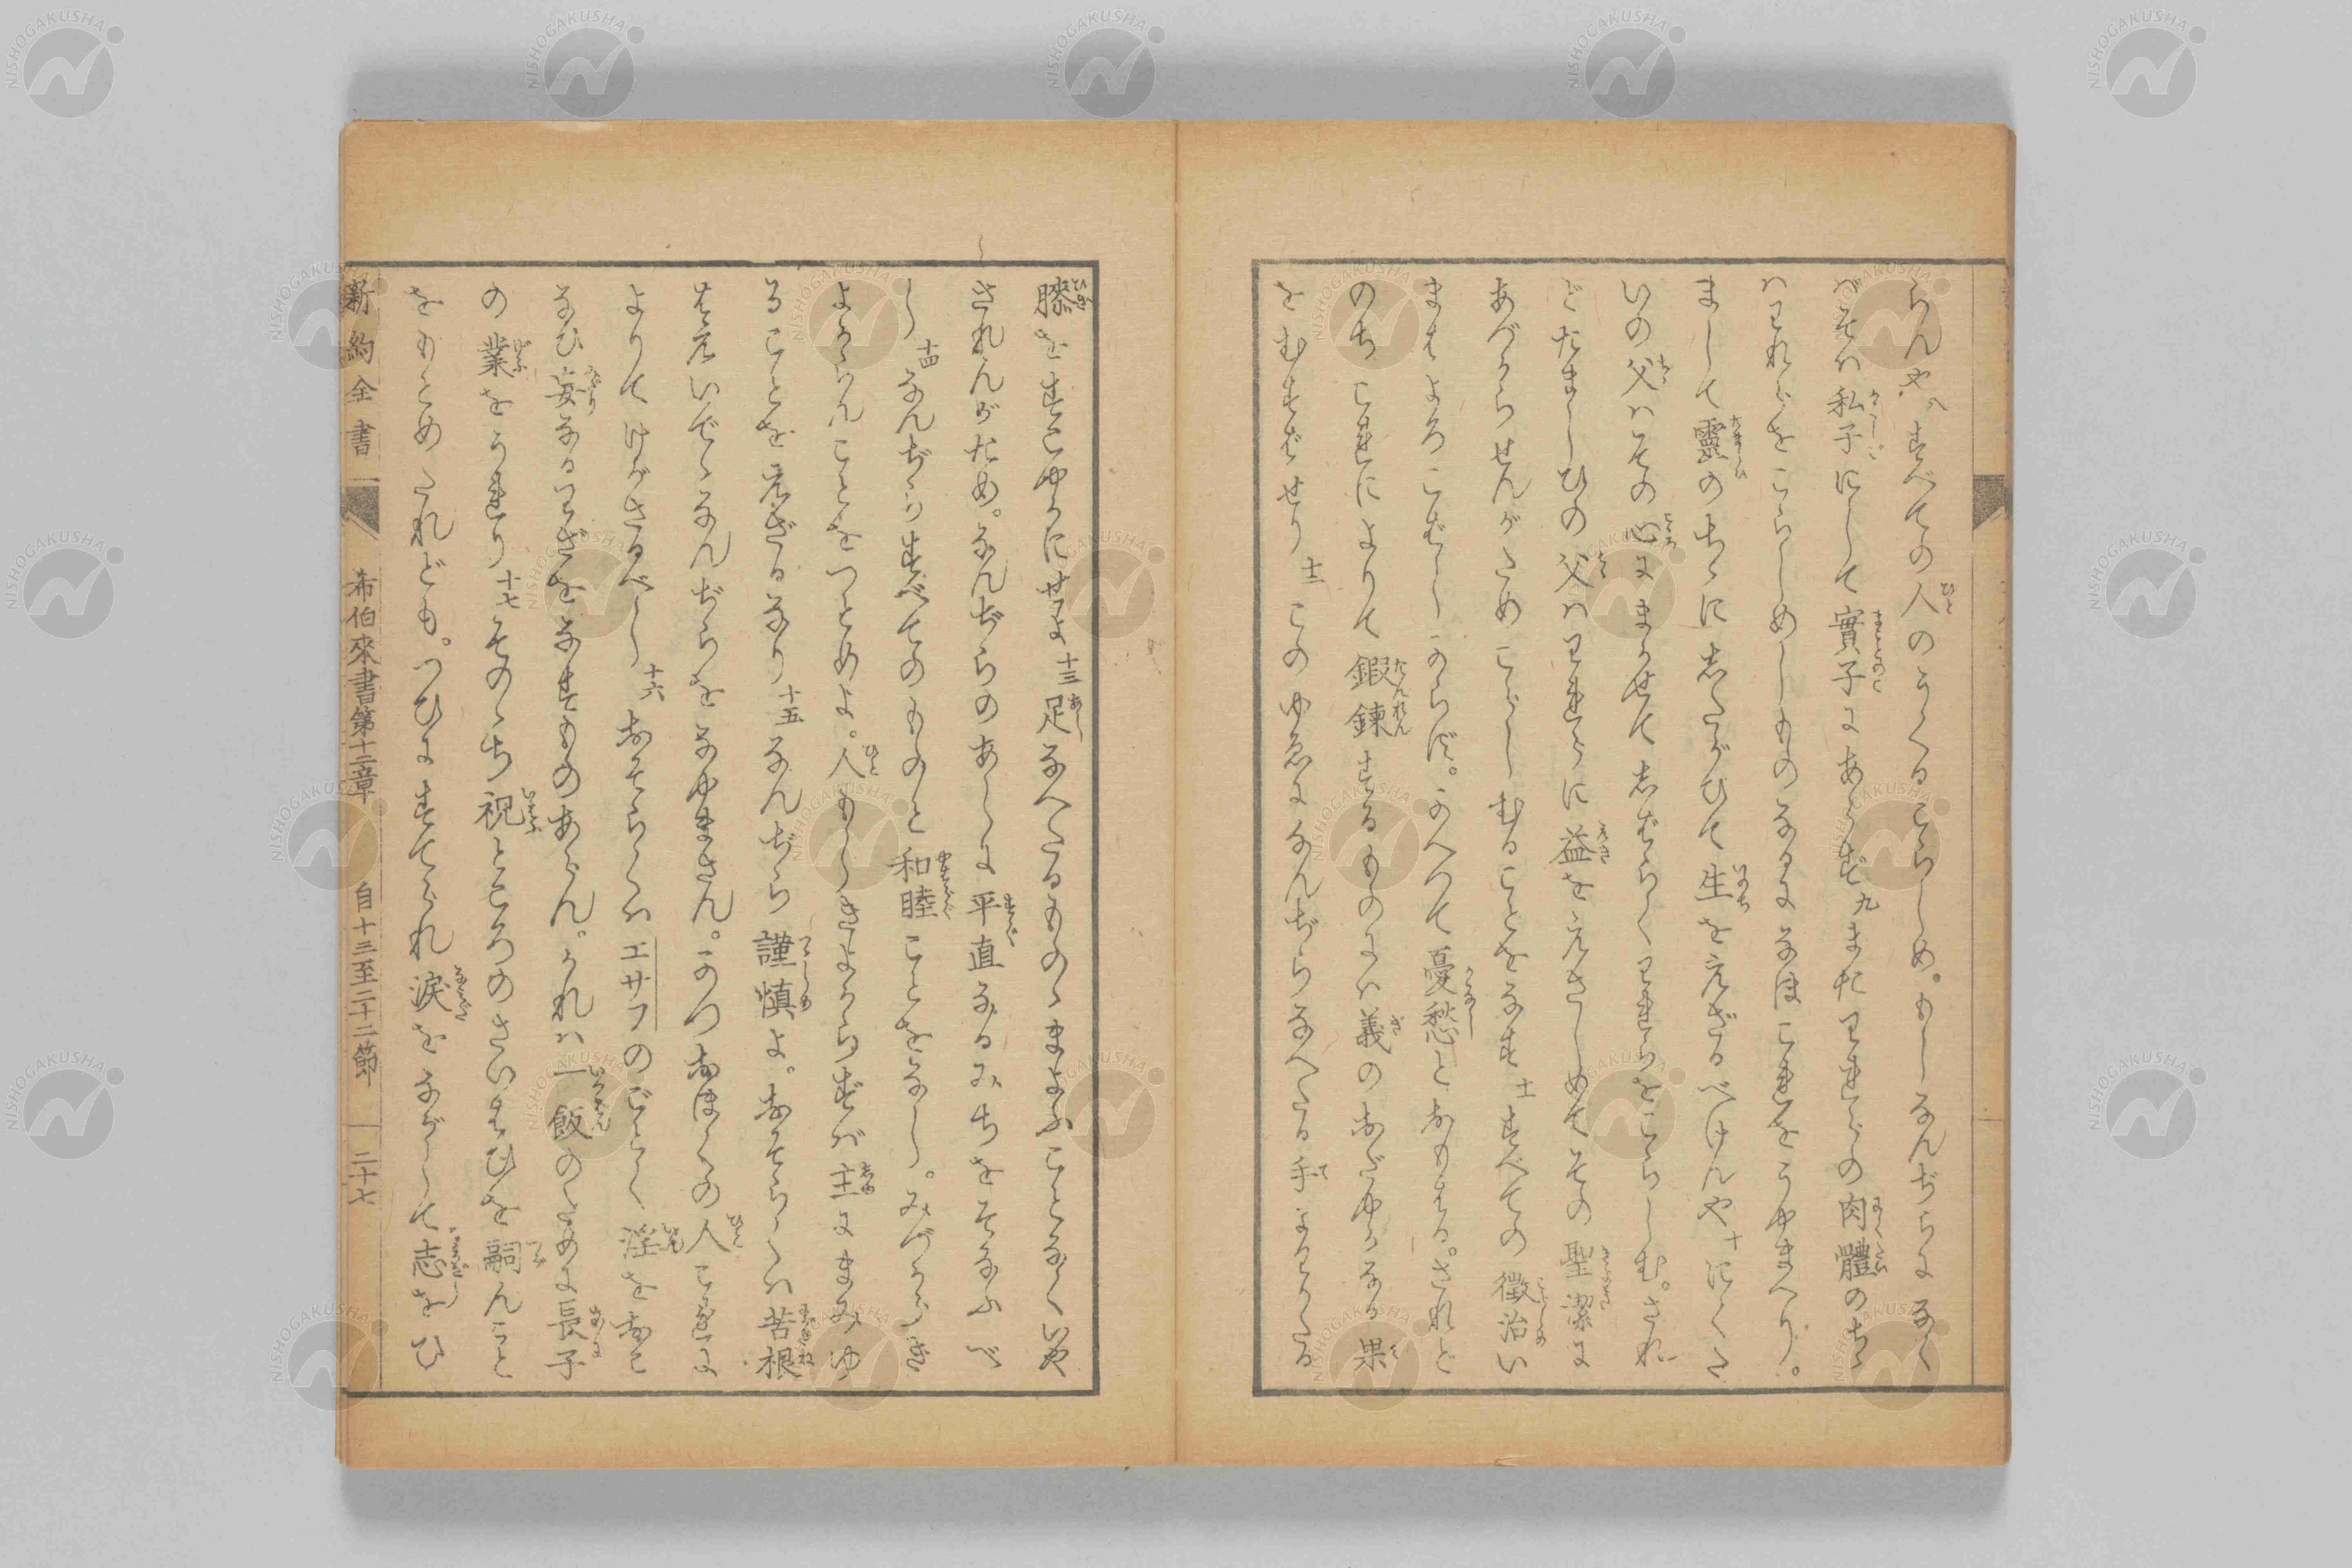 らんや八すべての人のうくるこらしめ。もしなんぢらになく
バそハ私子にして實子にあらず九またわれらの肉體のちゝ
ハわれらをこらしめしものなるになほこれをうやまへり。
まして靈のちゝにしたがひて生をえざるべけんや十にくた
いの父ハその心にまかせてしばらくわれらをこらしむ。され
どたましひの父ハわれらに益をえさしめてその聖潔に
あづからせんがためこらしむることをなす十一すべての徴治い
まはよろこばしからず。かへつて憂愁とおもはる。されど
のちこれによりて鍜錬するものにハ義のおだやかなる果
をむすばせり十二このゆゑになんぢらなへたる手よわりたる
膝をすこやかにせよ十三足なへたるものゝまよふことなくいや
されんがため。なんぢらのあしに平直なるみちをそなふべ
し十四なんぢらすべてのものと和睦ことをなし。みづからき
よからんことをつとめよ。人もしきよからずバ主にまみゆ
ることをえざるなり十五なんぢら謹慎よ。おそらくハ苦根
はえいでゝなんぢらをなやまさん。かつおほくの人これに
よりてけがさるべし十六おそらくハエサフのごとく淫をおこ
なひ妄なるわざをなすものあらん。かれハ一飯のために長子
の業をうれり十七そのゝち祝ところのさいはひを嗣んこと
をもとめたれども。つひにすてられ涙をながして志をひ
新約全書 希伯來書第十二章 自十三至二十二節 二十七